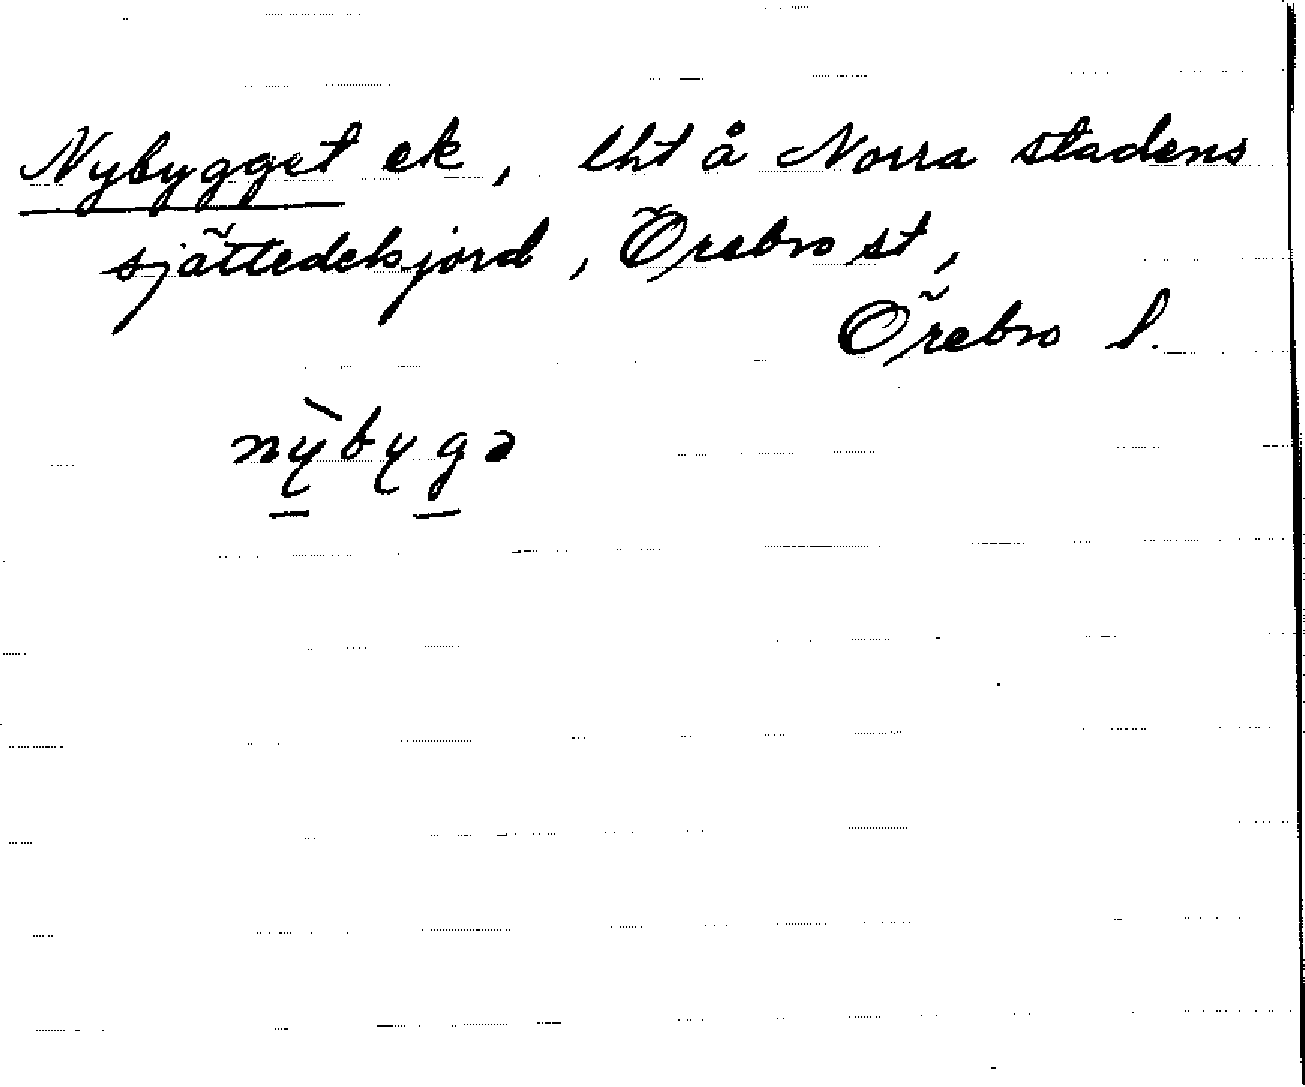 Nybygget ek, lht å Norra stadens
sjättedelsjord, Örebro st,
Örebro l.
nỳbygə